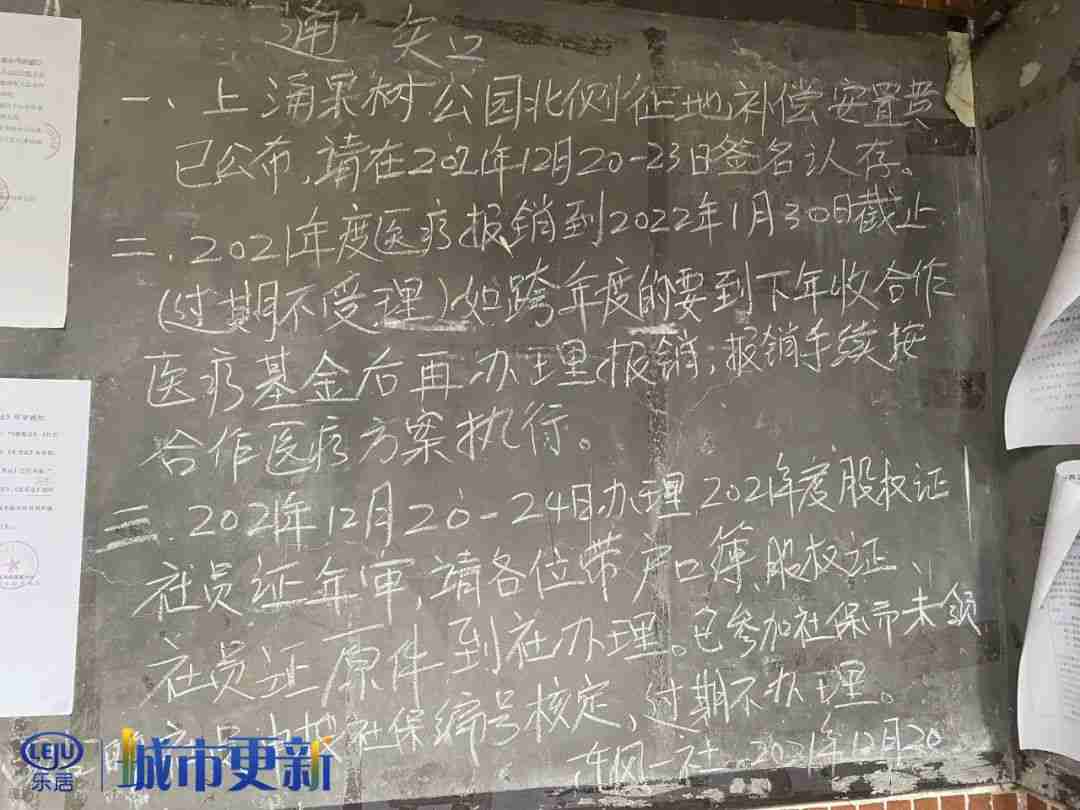 通知
一、上涌果树公园北侧征地补偿安置费
已公布,请在2021年12月20-23日签名认存。
二.2021年度医疗报销到2022年1月30日截止
(过期不受理)如跨年度的要到下年收合作
医疗基金后再办理报销,报销手续按
合作医疗方案执行。
三.2021年12月20-24日办理2021年度股权证、
社员证年审,请各位带户口簿、股权证、
社员证原件到社办理。已参加社保而未领
社保编号核定,过期不办理。
东风一社 2021年12月20
LEJU 乐居 城市更新